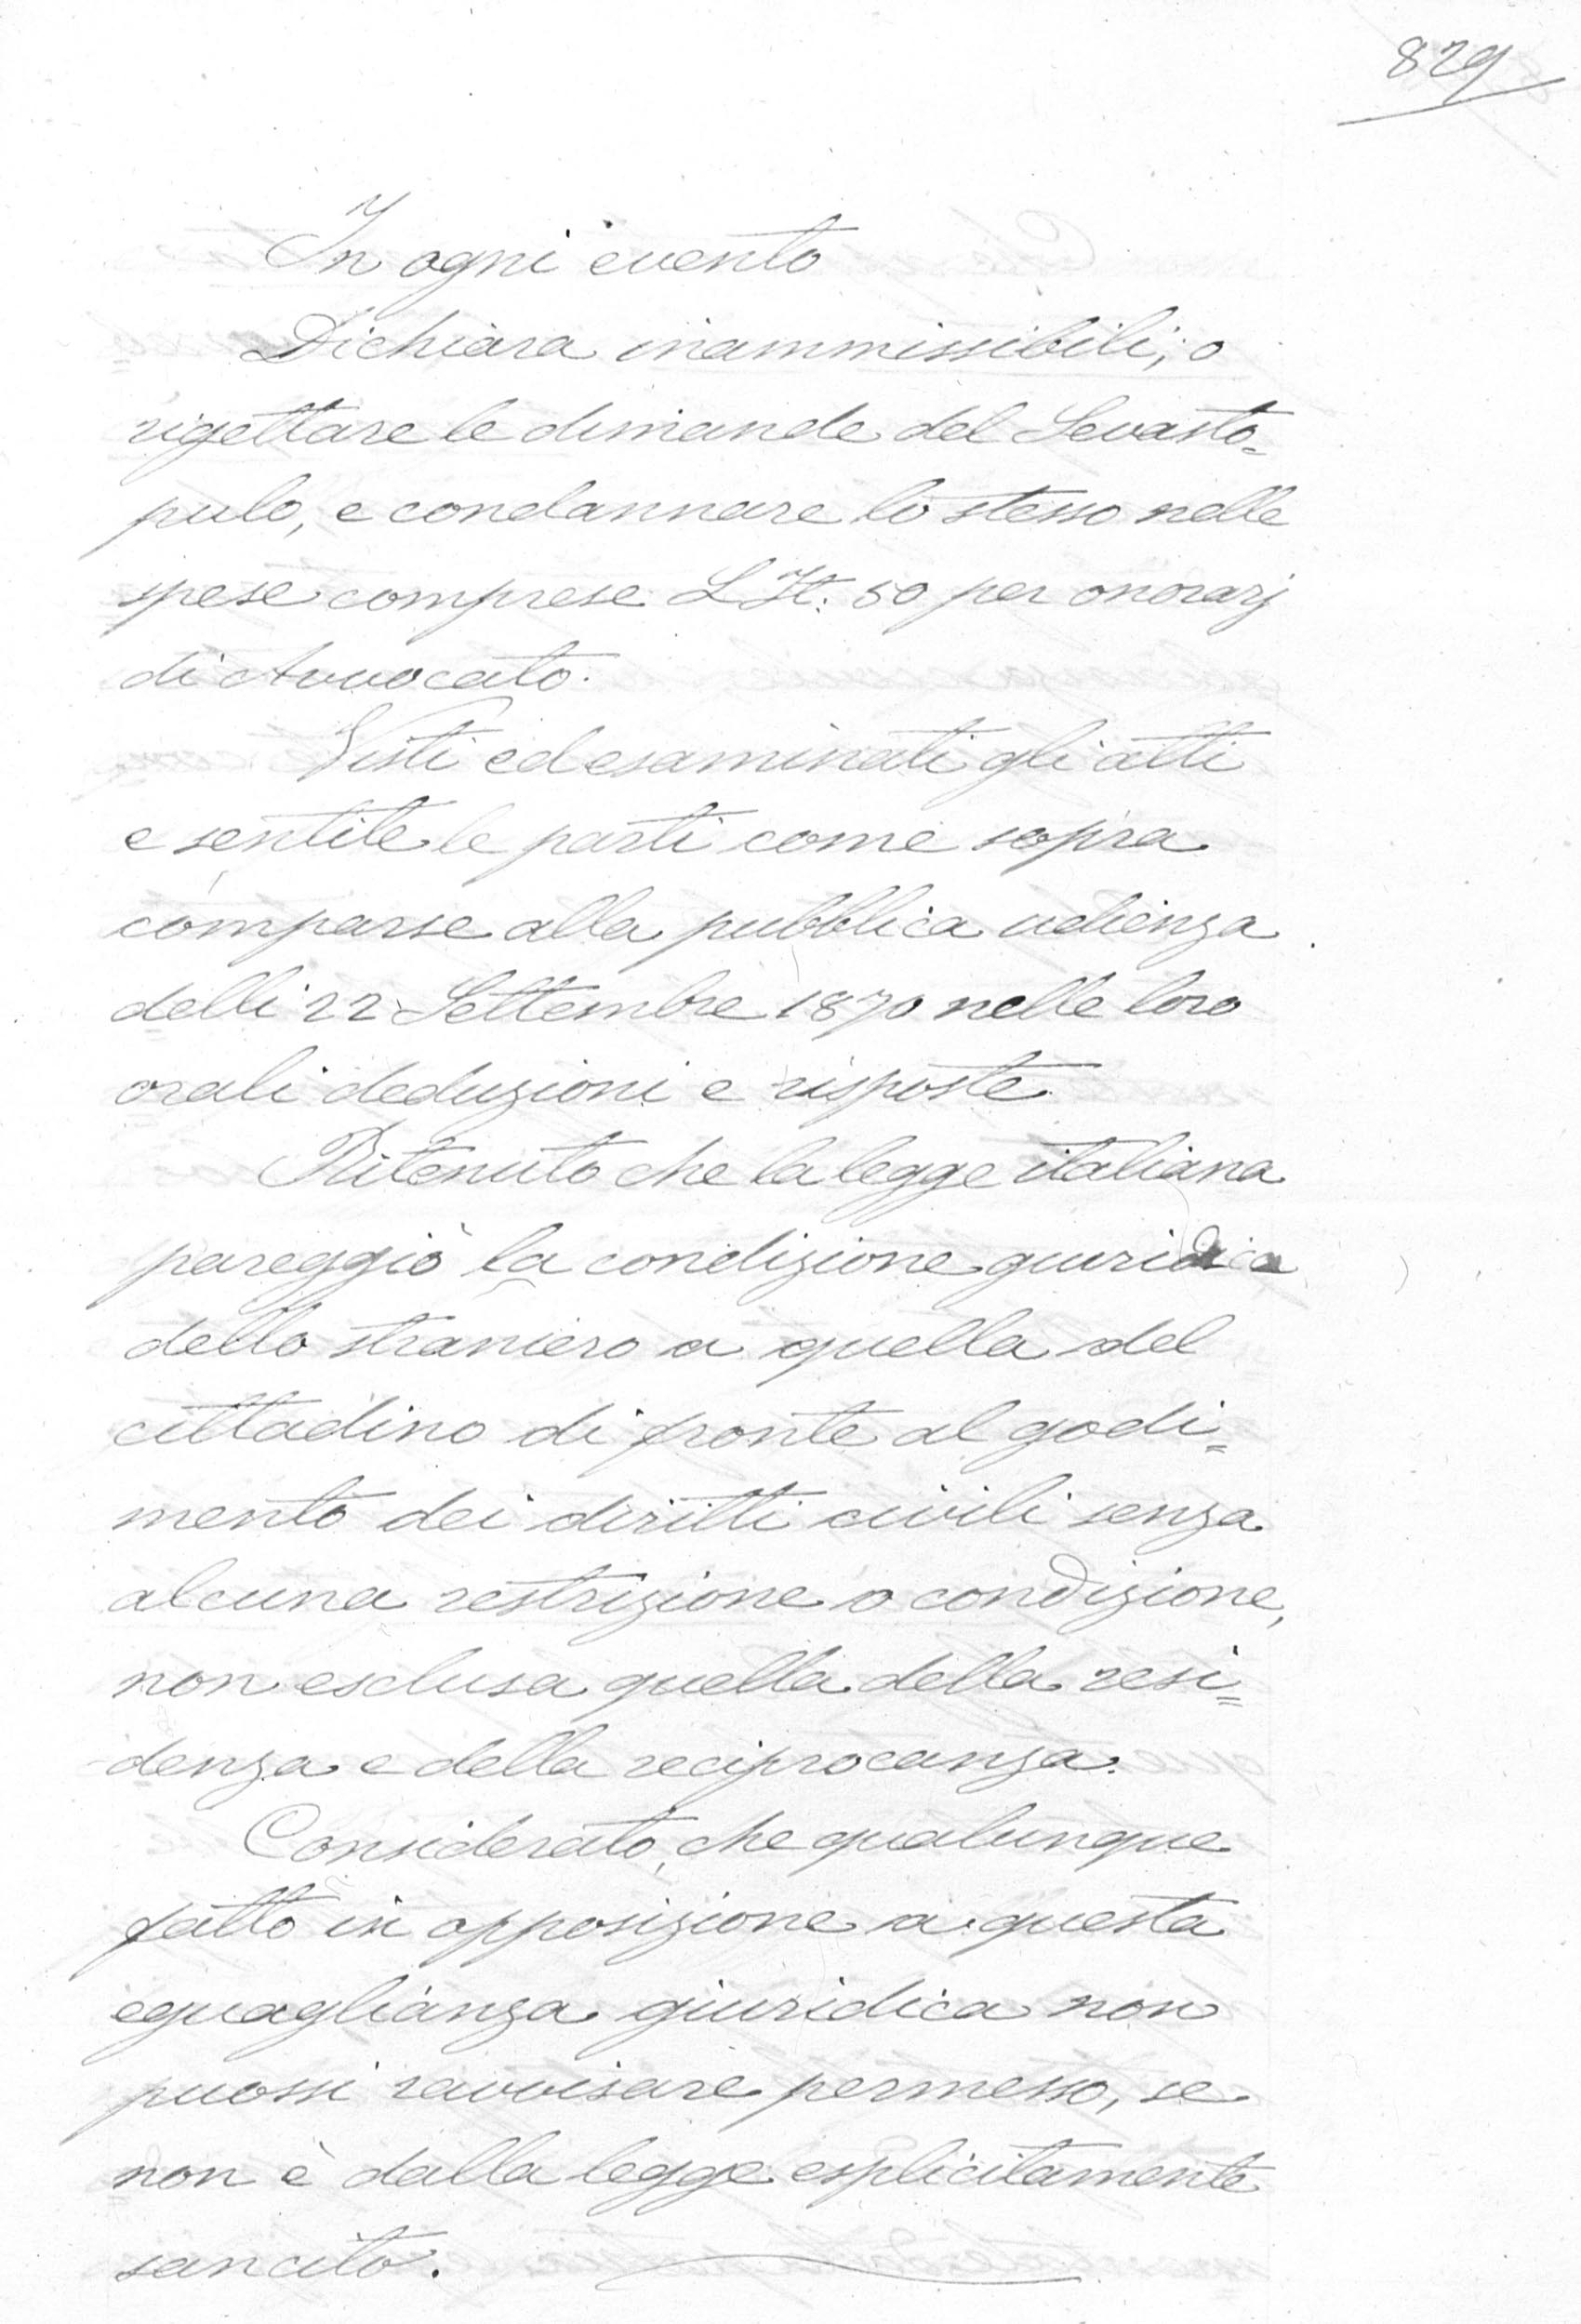 829
In ogni evento
Dichiara inammissibili; o
rigettare le dimande del Sevasto=
pulo, e condannare lo stesso nelle
spese comprese L It: 50 per onorarj
di Avvocato.
Visti ed esaminati gli atti
e sentite le parti come sopra
comparse alla pubblica udienza
delli 22 Settembre 1870 nelle loro
orali deduzioni e risposte
Ritenuto che la legge italiana
pareggiò la condizione giuridica
dello straniero a quella del
cittadino di fronte al godi=
mento dei diritti civili senza
alcuna restrizione o condizione,
non esclusa quella della resi=
denza e della reciprocanza.
Considerato, che qualunque
fatto in opposizione a questa
eguaglianza giuridica non
puossi ravvisare permesso, se
non è dalla legge esplicitamente
sancito.